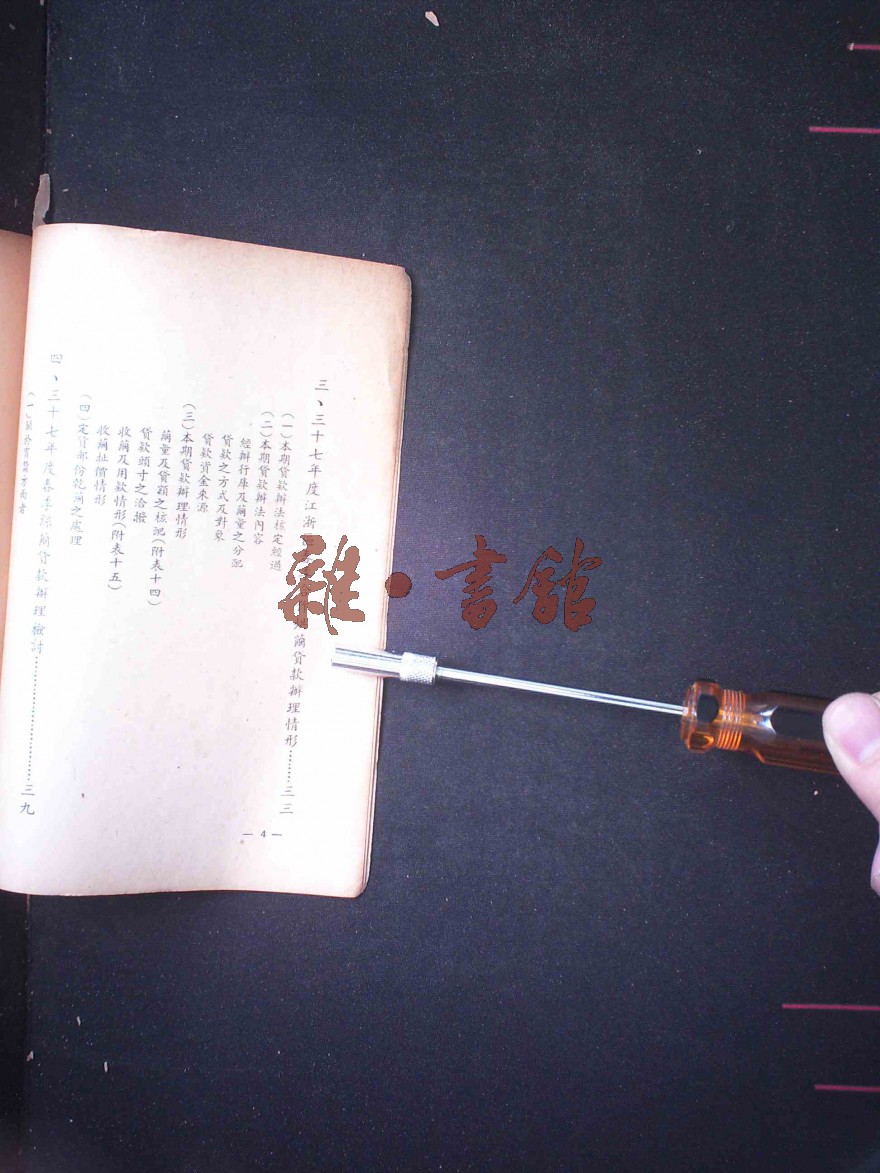 三、三十七年度江浙
繭貸款辦理情形………三三
(一)本期貸款辦法核定經過
(二)本期貸款辦法內容
經辦行庫及繭量之分配
貸款之方式及對象
貸款資金來源
(三)本期貸款辦理情形
繭量及貸額之核配(附表十四)
貸款頭寸之洽撥
收繭及用款情形(附表十五)
收繭扯價情形
(四)定貨部份乾繭之處理
四、三十七年度春季絲繭貸款辦理檢討………三九
(一)關於實質方面者
— 4 —
雜·書館